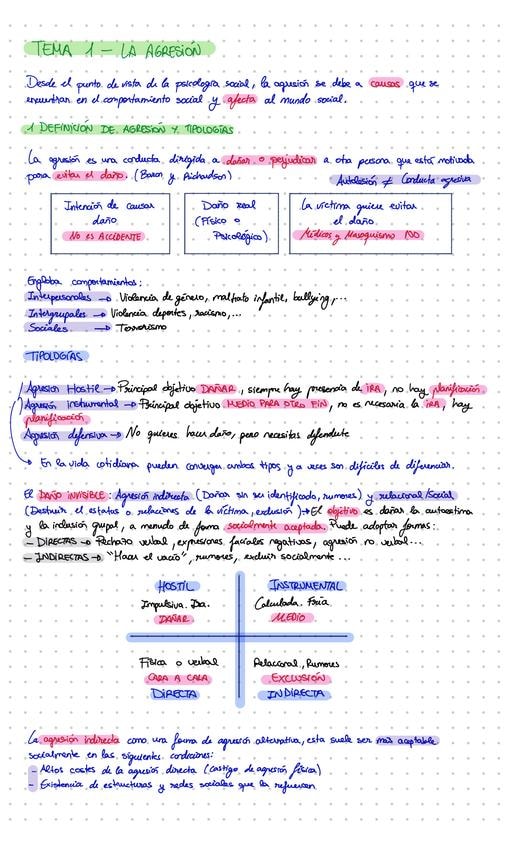 TEMA 1 — LA AGRESIÓN
Desde el punto de vista de la psicología social, la agresión se debe a causas que se
encuentran en el comportamiento social y afecta al mundo social.
1 DEFINICIÓN DE AGRESIÓN Y TIPOLOGÍAS
La agresión es una conducta dirigida a dañar o perjudicar a otra persona que está motivada
para evitar el daño. (Baron y Richardson)
Autolesión ≠ Conducta agresiva
Intención de causar
daño
NO ES ACCIDENTE
Daño real
(Físico o
Psicológico)
La víctima quiere evitar
el daño
Médicos y Masoquismo NO
Engloba comportamientos:
Interpersonales → Violencia de género, maltrato infantil, bullying,...
Intergrupales → Violencia deportes, racismo,...
Sociales → Terrorismo
TIPOLOGÍAS
Agresión Hostil → Principal objetivo DAÑAR, siempre hay presencia de IRA, no hay planificación.
Agresión instrumental → Principal objetivo MEDIO PARA OTRO FIN, no es necesaria la IRA, hay
planificación.
Agresión defensiva → No quieres hacer daño, pero necesitas defenderte
→ En la vida cotidiana pueden converger ambos tipos y a veces son difíciles de diferenciar.
El DAÑO INVISIBLE: Agresión indirecta (Dañar sin ser identificado, rumores) y relacional/social
(Destruir el estatus o relaciones de la víctima, exclusión) → El objetivo es dañar la autoestima
y la inclusión grupal, a menudo de forma socialmente aceptada. Puede adoptar formas:
- DIRECTAS → Rechazo verbal, expresiones faciales negativas, agresión no verbal...
- INDIRECTAS → "Hacer el vacío", rumores, excluir socialmente...
HOSTIL
Impulsiva. Ira.
DAÑAR
INSTRUMENTAL
Calculada. Fría
MEDIO
Física o verbal
CARA A CARA
DIRECTA
Relacional, Rumores
EXCLUSIÓN
INDIRECTA
La agresión indirecta como una forma de agresión alternativa, esta suele ser más aceptable
socialmente en las siguientes condiciones:
- Altos costes de la agresión directa (castigo de agresión física)
- Existencia de estructuras y redes sociales que la refuercen